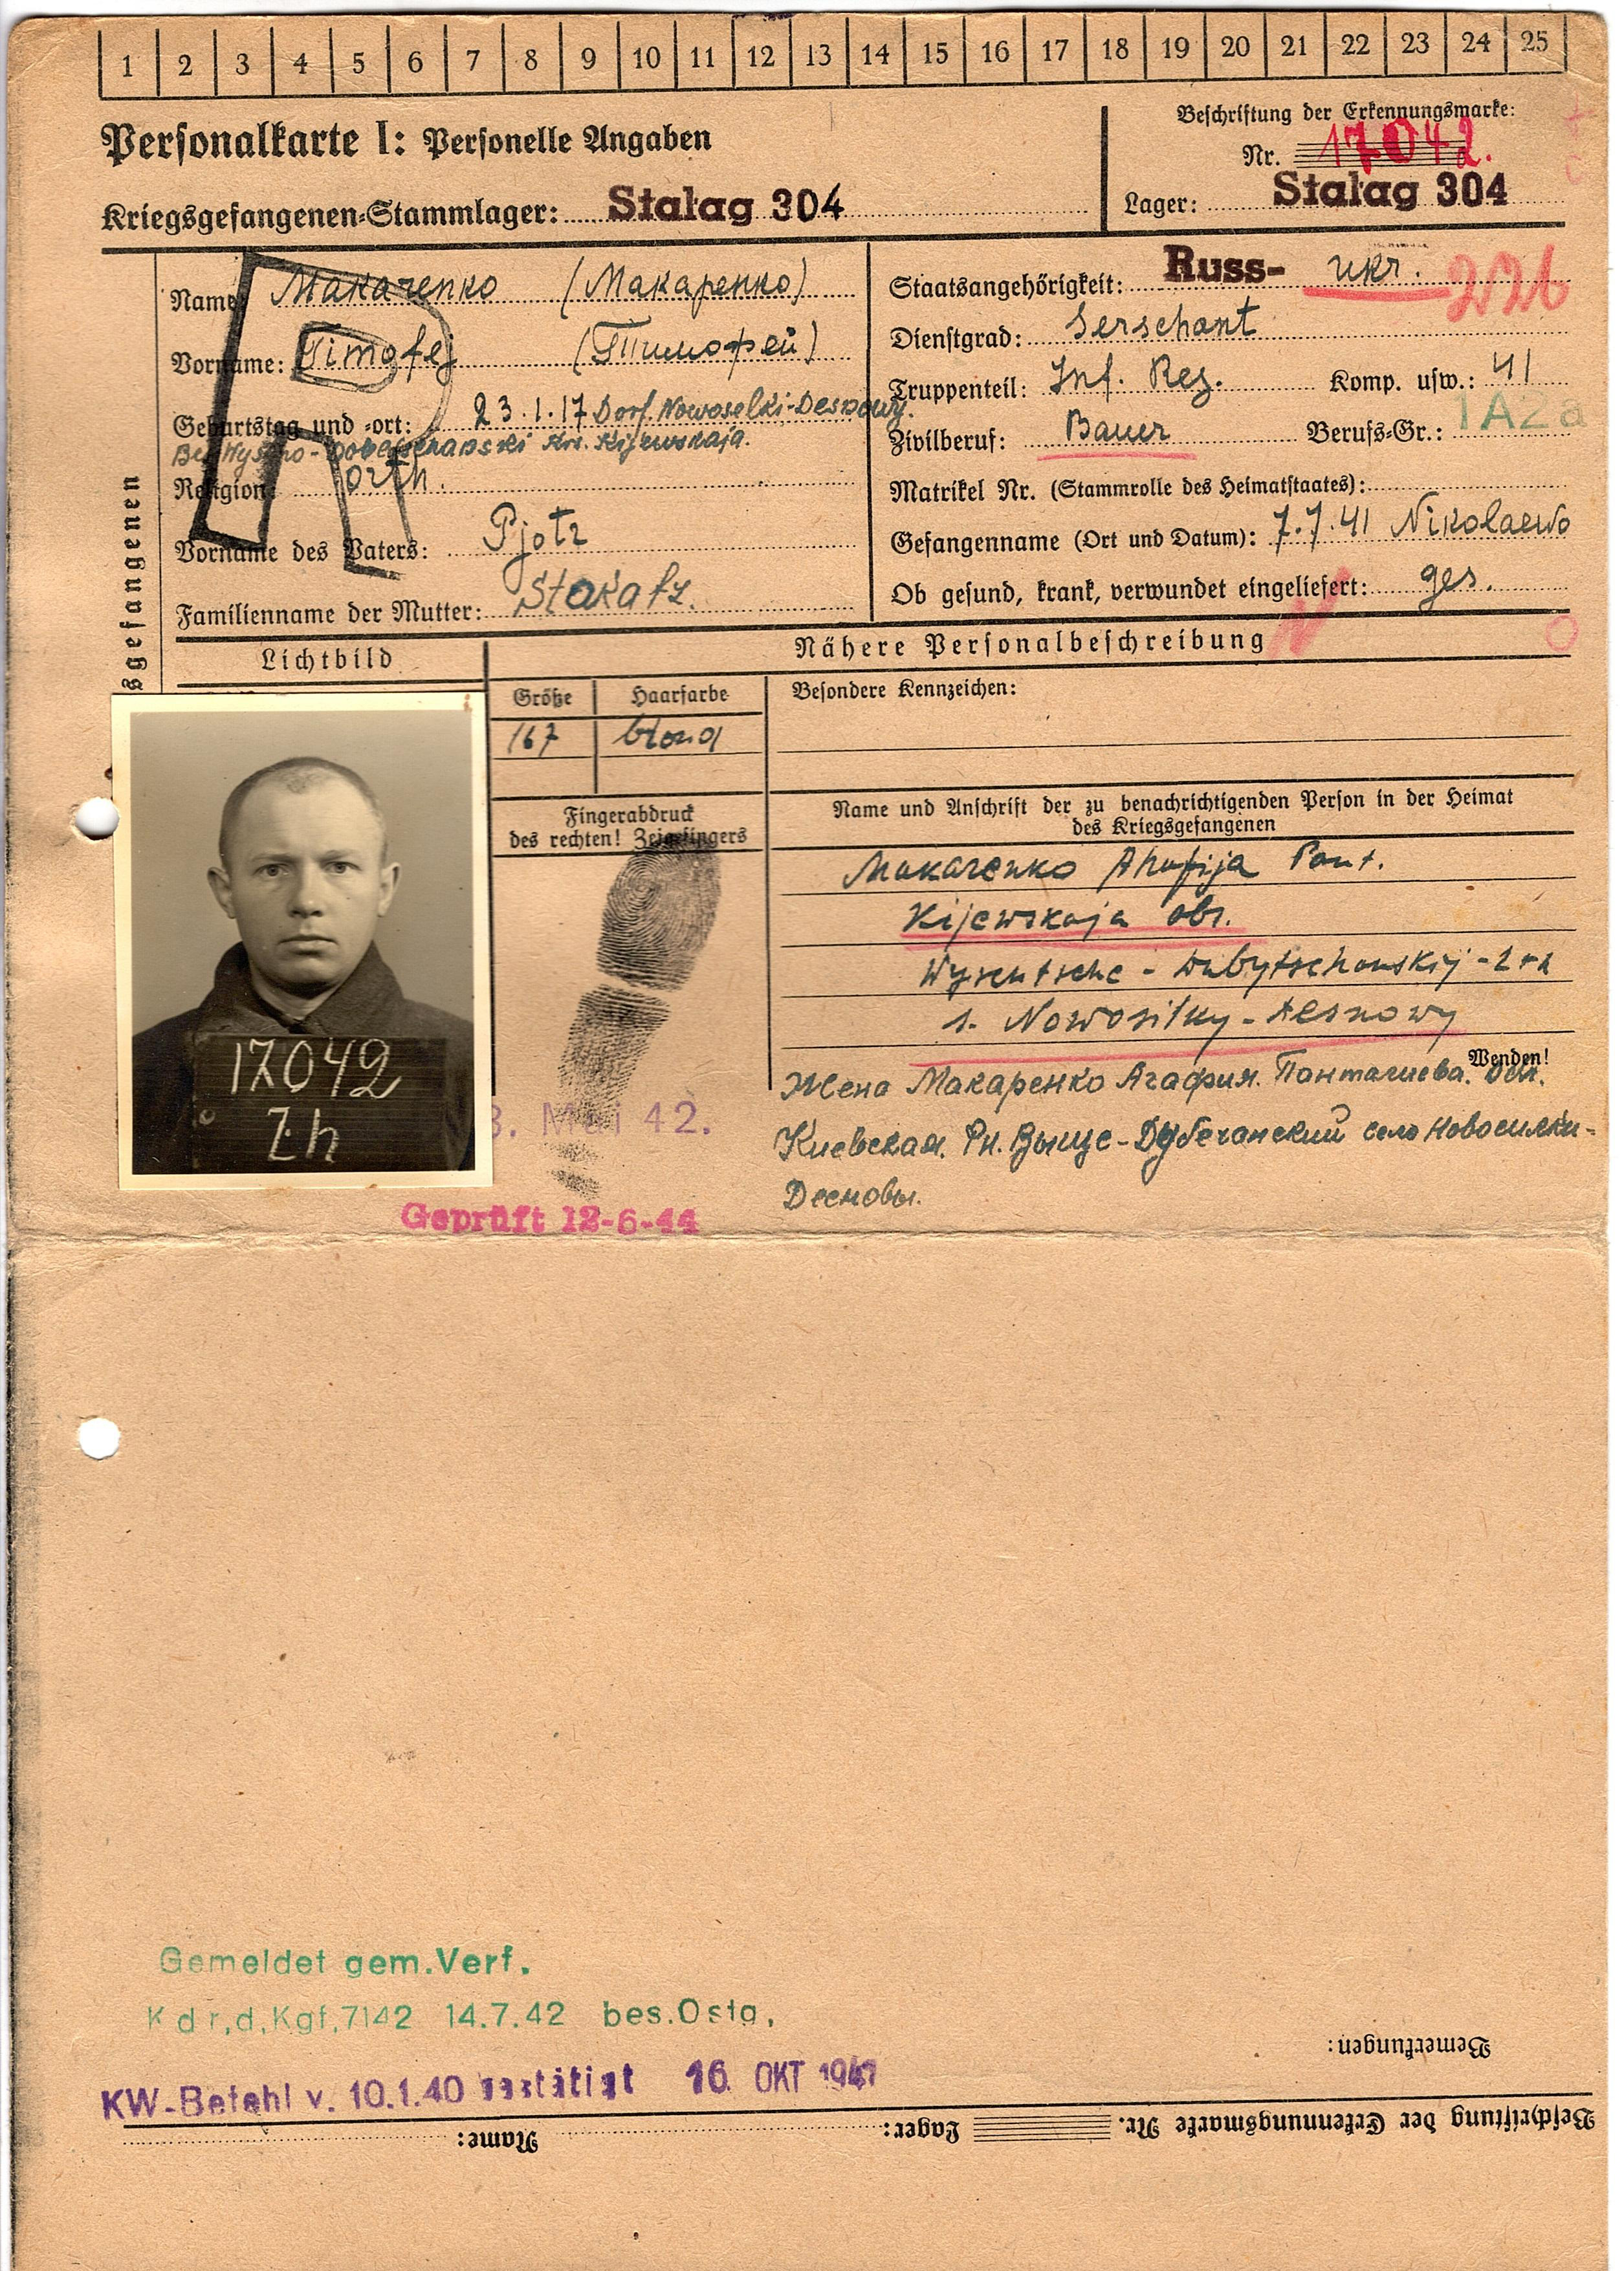 1 2 3 4 5 6 7 8 9 10 11 12 13 14 15 16 17 18 19 20 21 22 23 24 25
Personalkarte I: Personelle Angaben
Kriegsgefangenen-Stammlager: Stalag 304
Beschriftung der Erkennungsmarke:
Nr. 17042.
Lager: Stalag 304
sgefangenen
Name: Makarenko (Макаренко)
Vorname: Timofej (Тимофей)
Geburtstag und -ort: 23.1.17 Dorf. Nowoselki-Desnowy.
Kijewskaja.
Religion: orth.
Vorname des Vaters: Pjotr
Familienname der Mutter:
Staatsangehörigkeit: Russ- ukr. 226
Dienstgrad: Serschant
Truppenteil: Inf. Reg. Komp. usw.: 41
Zivilberuf: Bauer Berufs-Gr.: 1A2a
Matrikel Nr. (Stammrolle des Heimatstaates):
Gefangenname (Ort und Datum): 7.7.41 Nikolaewo
Ob gesund, krank, verwundet eingeliefert: ges.
Lichtbild
Nähere Personalbeschreibung
Größe Haarfarbe
167 blond
Besondere Kennzeichen:
Fingerabdruck
des rechten! Zeigefingers
Name und Anschrift der zu benachrichtigenden Person in der Heimat
des Kriegsgefangenen
Makarenko Ahafija Pant.
Kijewskaja obl.
s. Nowosilky - Desnowy
Wenden!
17042
Zh
Жена Макаренко Агафия.
Киевская. Рн. Выще-Дубечанский село Новосилки-
Десновы.
3. Mai 42.
Geprüft 12-6-44
Gemeldet gem.Verf.
Kdr,d,Kgf,7142 14.7.42 bes.Ostg,
KW-Befehl v. 10.1.40 bestätigt 16. OKT 1941
Bemerkungen:
Beschriftung der Erkennungsmarke Nr. Lager: Name: